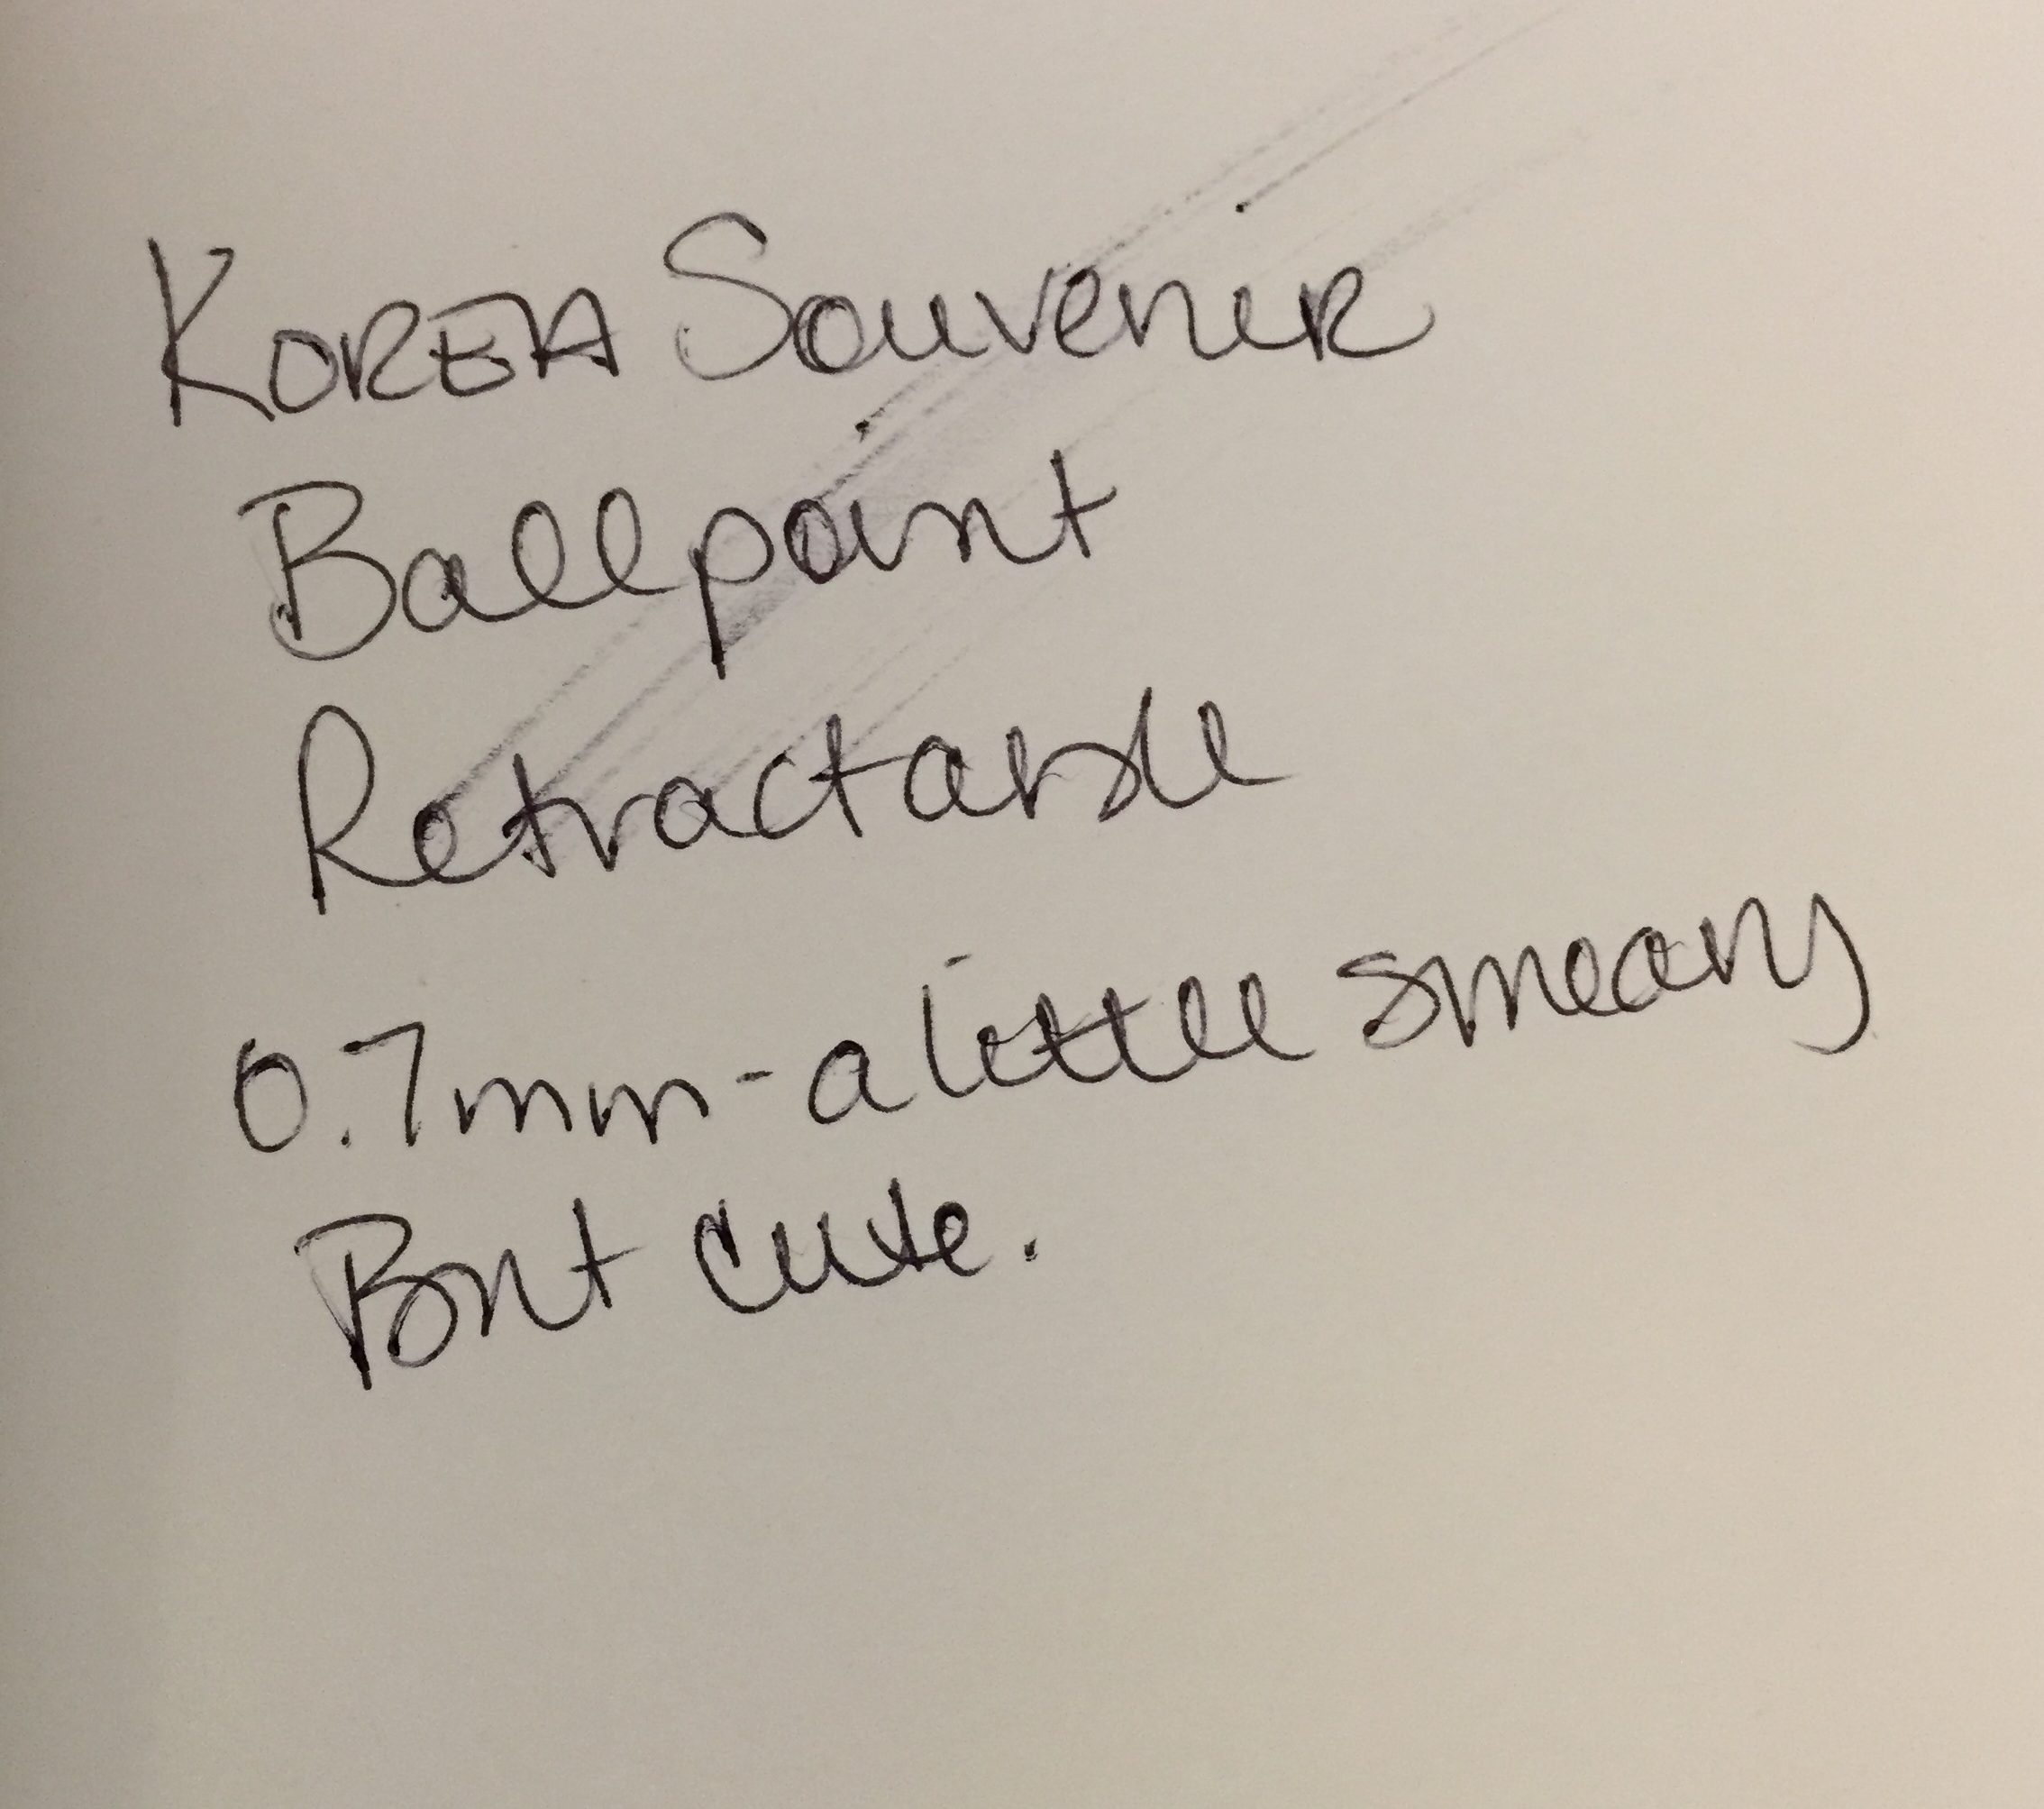 KOREA Souvenir
Ballpoint
Retractable
0.7mm - a little smeary
But cute.